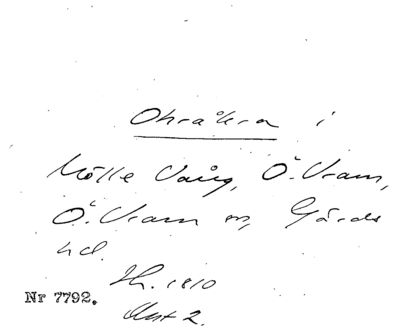 Ohraåkra i
Mölle Vång, Ö. Vram,
Ö. Vram sn, Gärds
hd.
Sk. 1810
Nr 7792.
Akt 2.